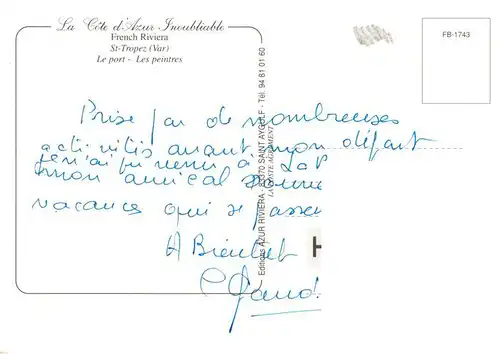 La Côte d'Azur Inoubliable
French Riviera
St-Tropez (Var)
Le port - Les peintres
FB-1743
Prise par de nombreuses
activités avant mon départ
je n'ai pu venir à
mon amical
vacances qui se passe
A Bientôt
Editions AZUR RIVIERA - 83370 SAINT AYGULF - Tél. 94 81 01 60